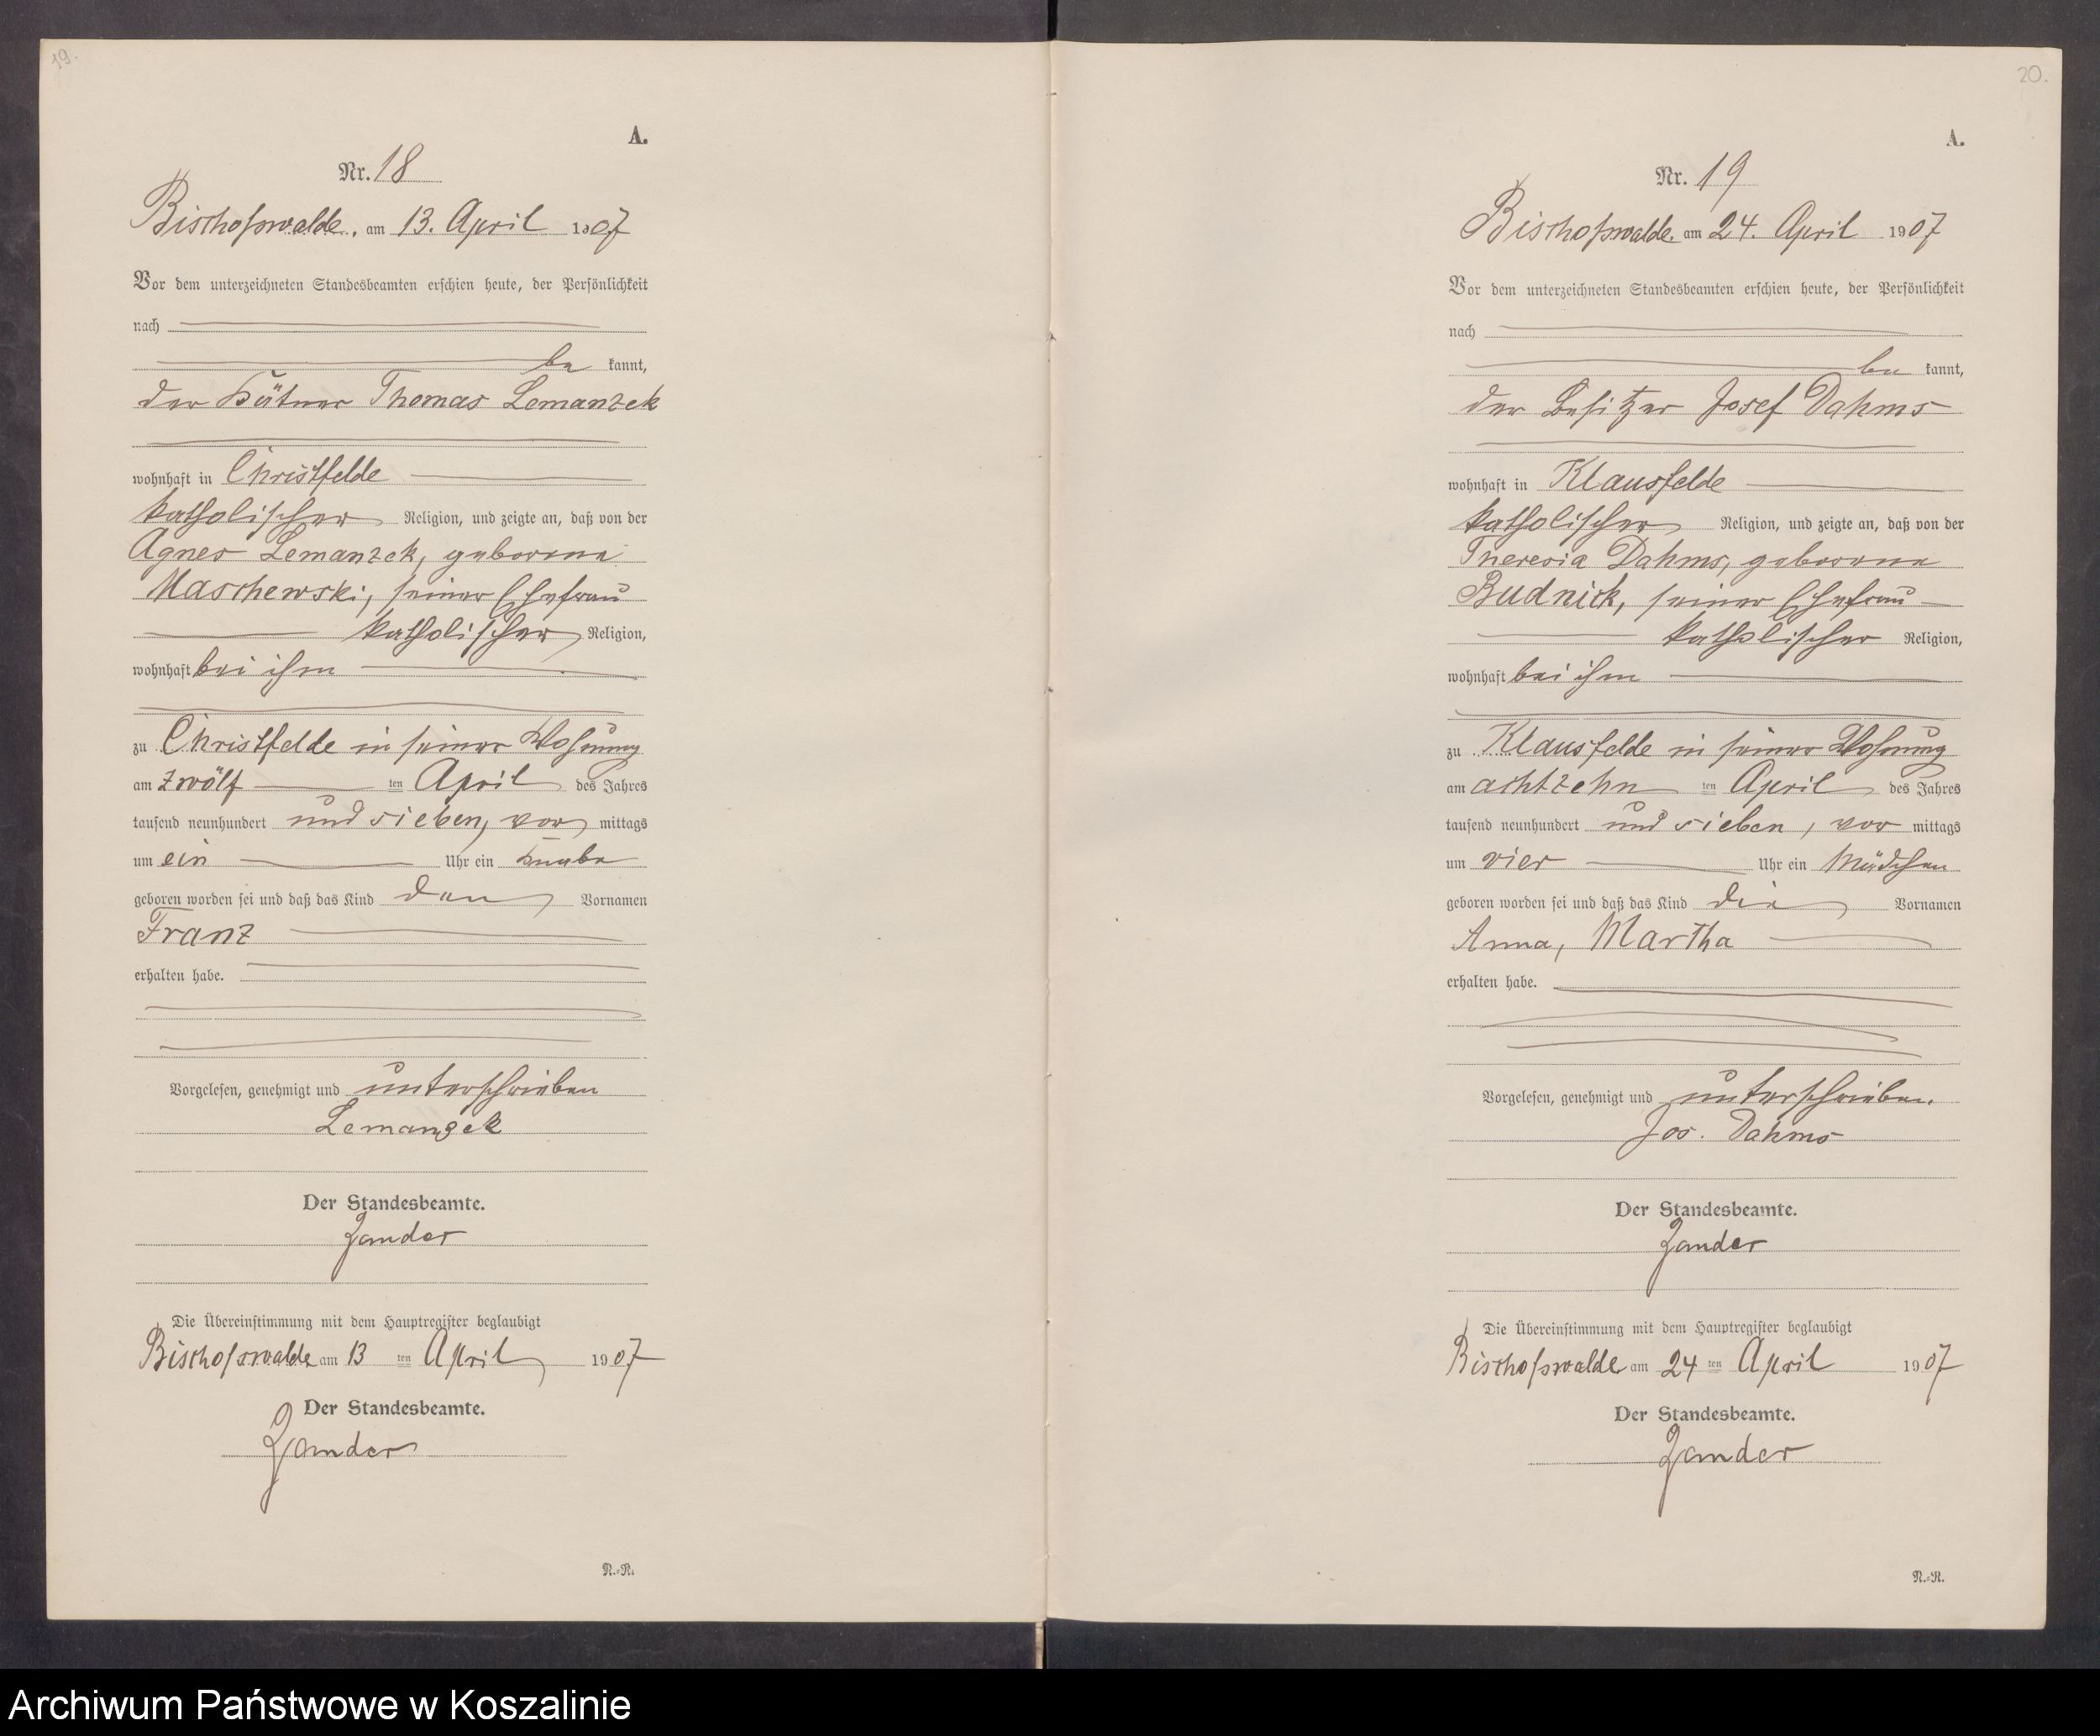 19.
A.
Nr. 18
Bischofswalde, am 13. April 1907
Vor dem unterzeichneten Standesbeamten erschien heute, der Persönlichkeit
nach
be kannt,
der Kätner Thomas Lemanzek
wohnhaft in Christfelde
katholischer Religion, und zeigte an, daß von der
Agnes Lemanzek, geborene
Maschewski, seiner Ehefrau
katholischer Religion,
wohnhaft bei ihm
zu Christfelde in seiner Wohnung
am zwölf ten April des Jahres
tausend neunhundert und sieben, vor mittags
um ein Uhr ein Knabe
geboren worden sei und daß das Kind den Vornamen
Franz
erhalten habe.
Vorgelesen, genehmigt und unterschrieben
Lemanzek
Der Standesbeamte.
Zander
Die Übereinstimmung mit dem Hauptregister beglaubigt
Bischofswalde am 13 ten April 1907
Der Standesbeamte.
Zander
N.-R.
20.
A.
Nr. 19
Bischofswalde am 24. April 1907
Vor dem unterzeichneten Standesbeamten erschien heute, der Persönlichkeit
nach
be kannt,
der Besitzer Josef Dahms
wohnhaft in Klausfelde
katholischer Religion, und zeigte an, daß von der
Theresia Dahms, geborene
Budnick, seiner Ehefrau
katholischer Religion,
wohnhaft bei ihm
zu Klausfelde in seiner Wohnung
am achtzehn ten April des Jahres
tausend neunhundert und sieben, vor mittags
um vier Uhr ein Mädchen
geboren worden sei und daß das Kind die Vornamen
Anna, Martha
erhalten habe.
Vorgelesen, genehmigt und unterschrieben.
Jos. Dahms
Der Standesbeamte.
Zander
Die Übereinstimmung mit dem Hauptregister beglaubigt
Bischofswalde am 24 ten April 1907
Der Standesbeamte.
Zander
N.-R.
Archiwum Państwowe w Koszalinie